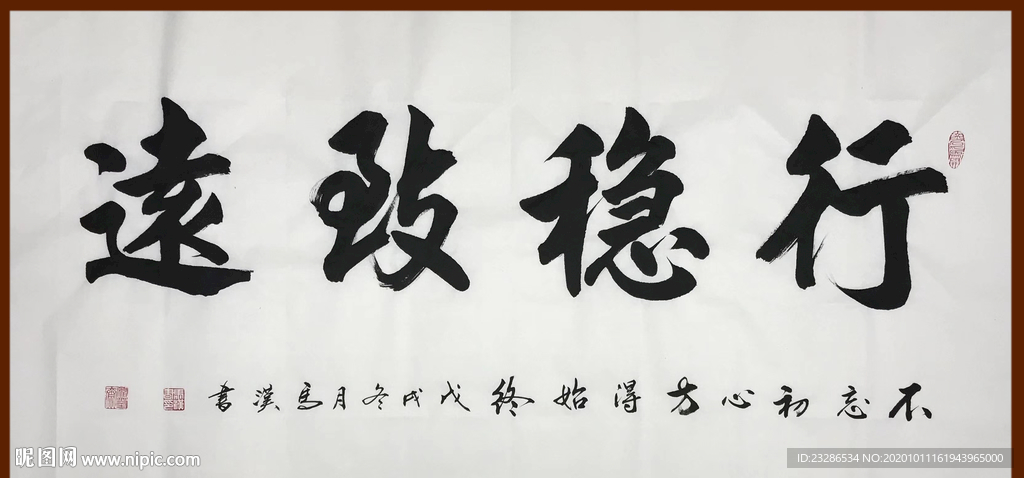 行稳致遠
不忘初心方得始终戊戌冬月馬漢書
昵图网 www.nipic.com
ID:23286534 NO:20201011161943965000